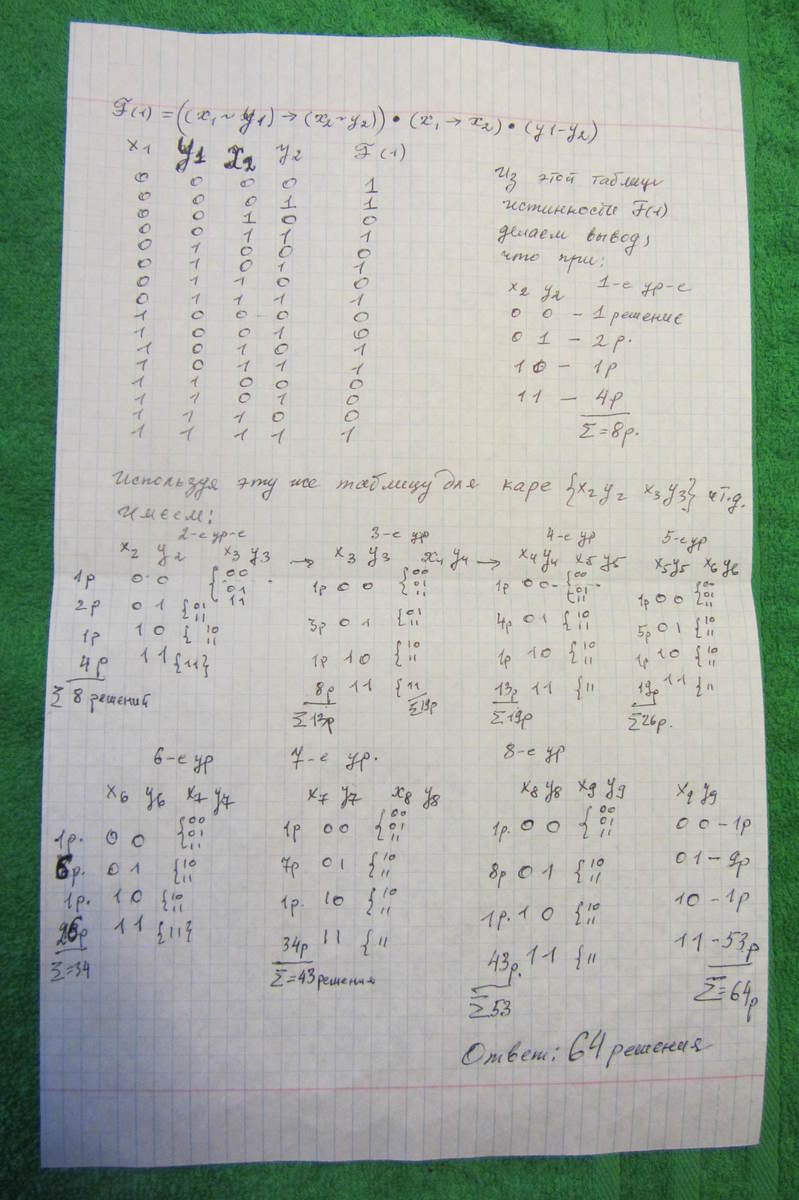 F(1) = ((x₁ ~ y1) → (x₂ ~ y₂)) • (x₁ → x₂) • (y1 - y₂)
x1 y1 x2 y2 F(1)
0 0 0 0 1
0 0 0 1 1
0 0 1 0 0
0 0 1 1 1
0 1 0 0 0
0 1 0 1 1
0 1 1 0 0
0 1 1 1 1
1 0 0 0 0
1 0 0 1 0
1 0 1 0 1
1 0 1 1 1
1 1 0 0 0
1 1 0 1 0
1 1 1 0 0
1 1 1 1 1
Из этой таблицы
истинности F(1)
делаем вывод,
что при:
x2 y2 1-е ур-е
0 0 - 1 решение
0 1 - 2р.
1 0 - 1р
11 - 4р
Σ=8р.
Используя эту же таблицу для каре {x₂ y₂ x₃ y₃} ч т.д.
имеем:
2-е ур-е
x2 y2 x3 y3 →
1р 0 0 {00 01 11
2р 0 1 {01 11
1р 1 0 {10 11
4р 11 {11}
Σ 8 решений
3-е ур
x3 y3 x4 y4 →
1р 0 0 {00 01 11
3р 0 1 {01 11
1р 1 0 {10 11
8р 11 {11
Σ13р Σ19р
4-е ур
x4 y4 x5 y5
1р 00 {00 01 11
4р 0 1 {10 11
1р 1 0 {10 11
13р 11 {11
Σ19р
5-е ур
x5 y5 x6 y6
1р 0 0 {00 01 11
5р 0 1 {10 11
1р 1 0 {10 11
19р 11 {11
Σ26р.
6-е ур
x6 y6 x7 y7
1р. 0 0 {00 01 11
6р. 0 1 {10 11
1р. 1 0 {10 11
26р 11 {11}
Σ=34
7-е ур.
x7 y7 x8 y8
1р 0 0 {00 01 11
7р 0 1 {10 11
1р 10 {10 11
34р 11 {11
Σ=43 решения
8-е ур
x8 y8 x9 y9
1р. 0 0 {00 01 11
8р 0 1 {10 11
1р. 1 0 {10 11
43р. 11 {11
Σ53
x9 y9
0 0 - 1р
0 1 - 9р
10 - 1р
11 - 53р
Σ=64р
Ответ: 64 решения